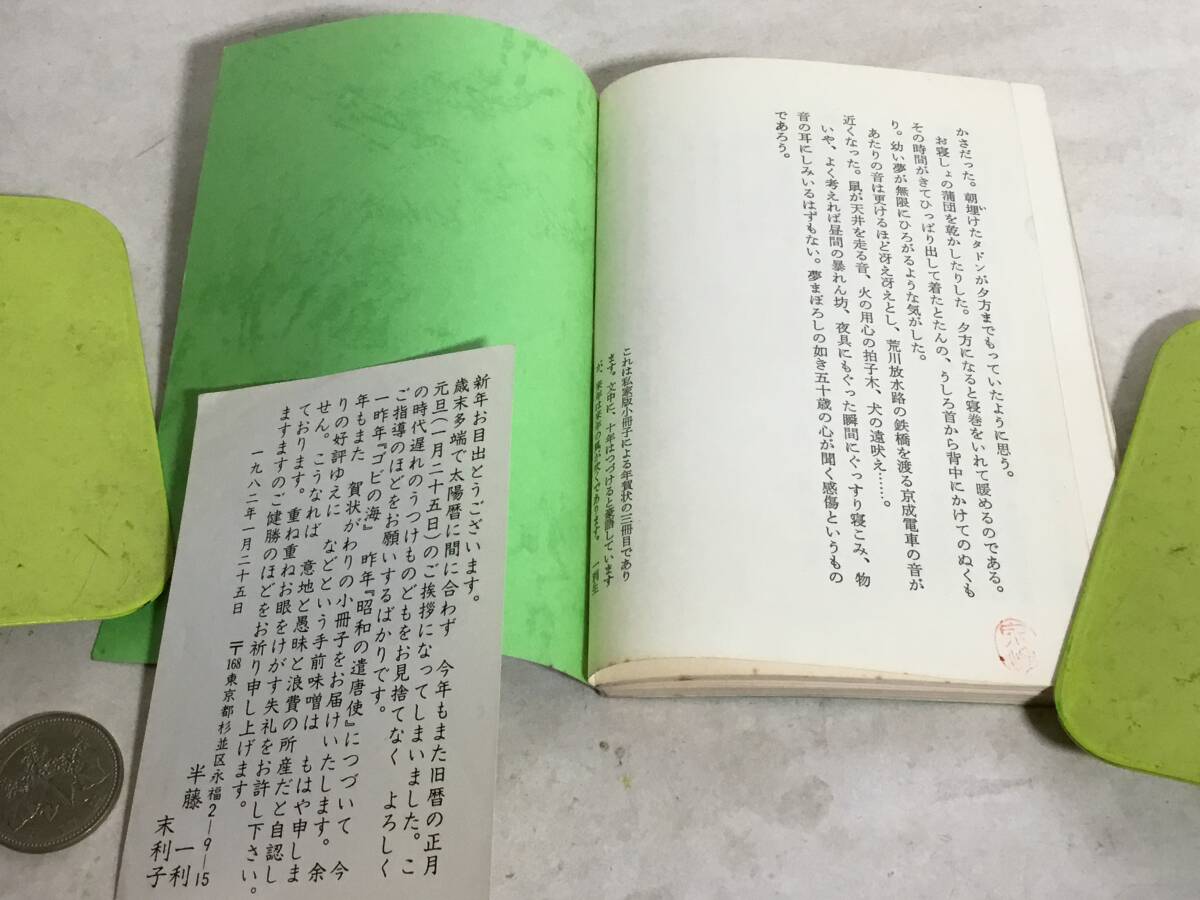 かさだった。朝埋けたタドンが夕方までもっていたように思う。
い
お寝しょの蒲団を乾かしたりした。夕方になると寝巻をいれて暖めるのである。
その時間がきてひっぱり出して着たとたんの、うしろ首から背中にかけてのぬくも
り。幼い夢が無限にひろがるような気がした。
あたりの音は更けるほど冴え冴えとし、荒川放水路の鉄橋を渡る京成電車の音が
近くなった。鼠が天井を走る音、火の用心の拍子木、犬の遠吠え……。
いや、よく考えれば昼間の暴れん坊、夜具にもぐった瞬間にぐっすり寝こみ、物
音の耳にしみいるはずもない。夢まぼろしの如き五十歳の心が聞く感傷というもの
であろう。
これは私家版小冊子による年賀状の三冊目であり
ます。文中に、十年はつづけると豪語しています
が、来年は来年の風が吹くであります。
新年お目出とうございます。
歳末多端で太陽暦に間に合わず 今年もまた旧暦の正月
元旦(一月二十五日)のご挨拶になってしまいました。こ
の時代遅れのうつけものどもをお見捨てなく よろしく
ご指導のほどをお願いするばかりです。
一昨年『ゴビの海』 昨年『昭和の遣唐使』につづいて 今
年もまた 賀状がわりの小冊子をお届けいたします。余
りの好評ゆえに などという手前味噌は もはや申しま
せん。こうなれば 意地と愚昧と浪費の所産だと自認し
ております。重ね重ねお眼をけがす失礼をお許し下さい。
ますますのご健勝のほどをお祈り申し上げます。
一九八二年一月二十五日
〒168東京都杉並区永福2-9-15
半藤 一利
末利子